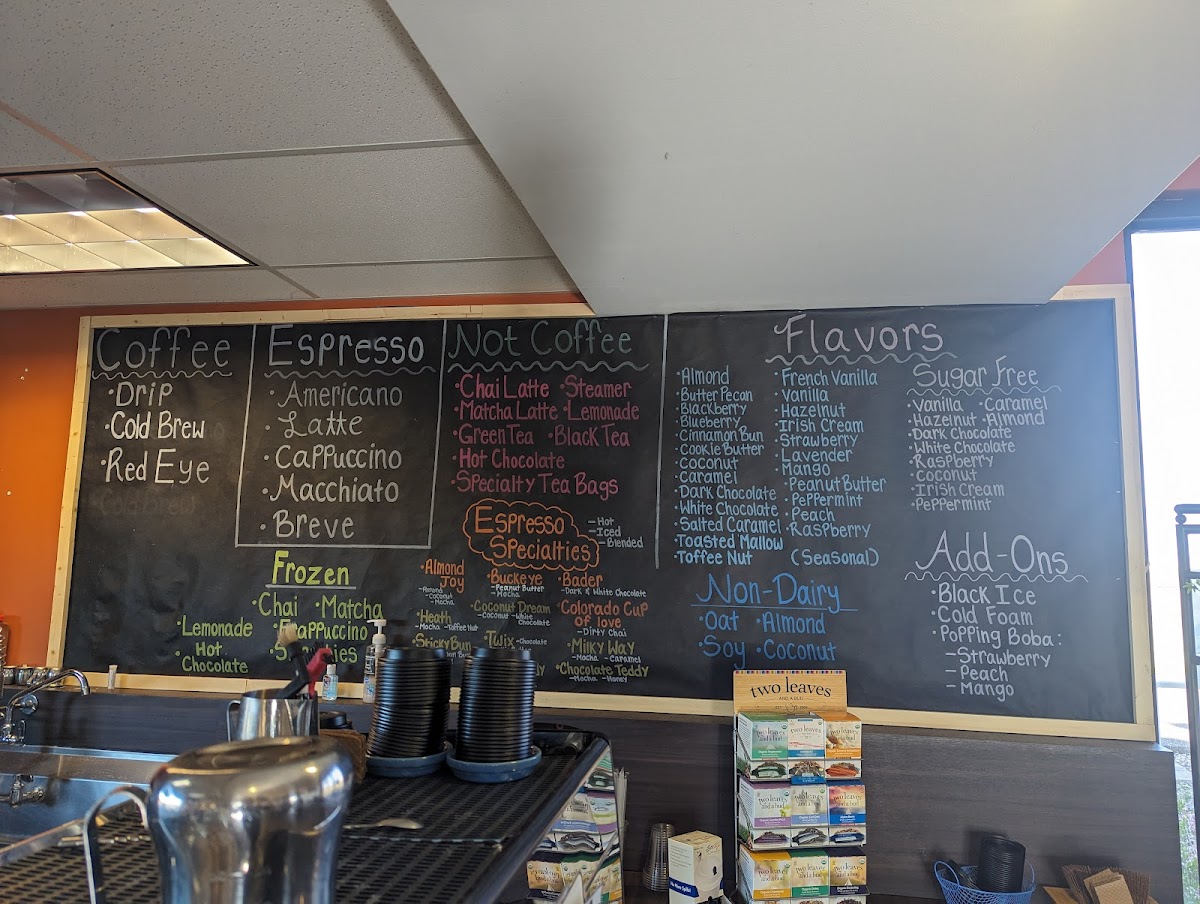 Coffee
· Drip
· Cold Brew
· Red Eye
Cold Brew
Espresso
· Americano
· Latte
· Cappuccino
· Macchiato
· Breve
Not Coffee
· Chai Latte · Steamer
· Matcha Latte · Lemonade
· Green Tea · Black Tea
· Hot Chocolate
· Specialty Tea Bags
Espresso
Specialties
— Hot
— Iced
— Blended
Frozen
· Chai · Matcha
· Lemonade · Frappuccino
· Hot
Chocolate
· Almond
Joy
- Almond
- Coconut
- Mocha
· Heath
- Mocha - Toffee Nut
· Sticky Bun
· Buckeye
- Peanut Butter
- Mocha
· Coconut Dream
- Coconut - White
Chocolate
· Twix - Chocolate
· Bader
- Dark & White Chocolate
· Colorado Cup
of Love
- Dirty Chai
· Milky Way
- Mocha - Caramel
· Chocolate Teddy
- Mocha - Honey
Flavors
· Almond
· Butter Pecan
· Blackberry
· Blueberry
· Cinnamon Bun
· Cookie Butter
· Coconut
· Caramel
· Dark Chocolate
· White Chocolate
· Salted Caramel
· Toasted Mallow
· Toffee Nut
· French Vanilla
· Vanilla
· Hazelnut
· Irish Cream
· Strawberry
· Lavender
· Mango
· Peanut Butter
· Peppermint
· Peach
· Raspberry
(Seasonal)
Sugar Free
· Vanilla · Caramel
· Hazelnut · Almond
· Dark Chocolate
· White Chocolate
· Raspberry
· Coconut
· Irish Cream
· Peppermint
Non-Dairy
· Oat · Almond
· Soy · Coconut
Add-Ons
· Black Ice
· Cold Foam
· Popping Boba:
— Strawberry
— Peach
— Mango
two leaves
AND A BUD
two leaves
and a bud
two leaves
and a bud
two leaves
and a bud
two leaves
and a bud
two leaves
and a bud
two leaves
and a bud
two leaves
and a bud
two leaves
and a bud
two leaves
and a bud